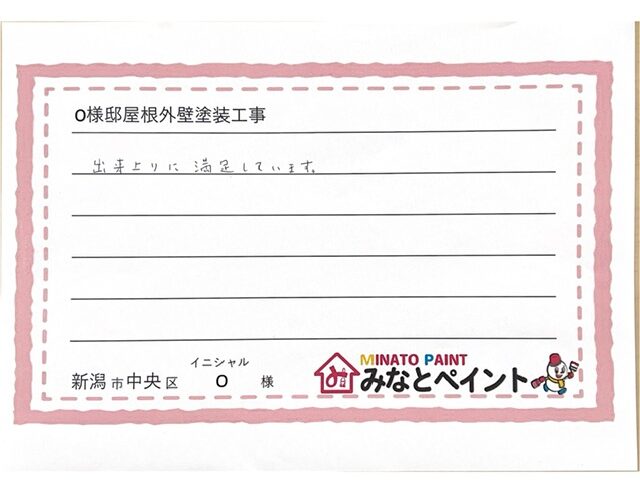 O様邸屋根外壁塗装工事
出来上りに満足しています。
イニシャル
新潟市中央区 O 様
MINATO PAINT
みなとペイント